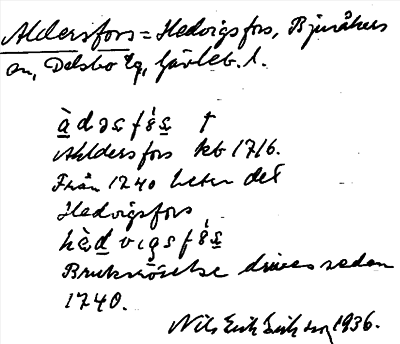 Aldersfors = Hedvigsfors, Bjuråkers
sn, Delsbo tg, Gävleb. l.
Ahldersfors kb 1716.
Från 1740 heter det
Hedvigsfors
Bruksrörelse drives sedan
1740.
Nils Erik Eriksson 1936.